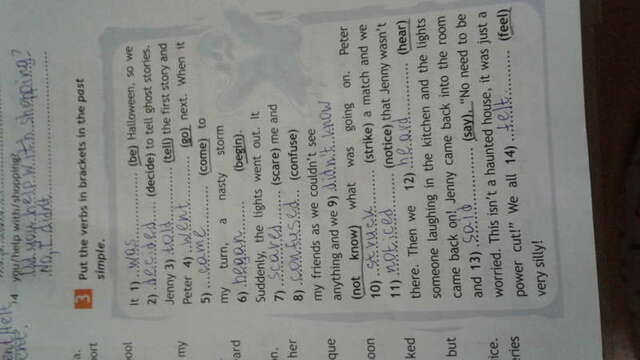 4 you/help with/shopping?
Did you help with shopping?
No, I didn't
3 Put the verbs in brackets in the past
simple.
It 1) was (be) Halloween, so we
2) decided (decide) to tell ghost stories.
Jenny 3) told (tell) the first story and
Peter 4) went (go) next. When it
5) came (come) to
my turn, a nasty storm
6) began (begin).
Suddenly, the lights went out. It
7) scared (scare) me and
8) confused (confuse)
my friends as we couldn't see
anything and we 9) didn't know
(not know) what was going on. Peter
10) struck (strike) a match and we
11) noticed (notice) that Jenny wasn't
there. Then we 12) heard (hear)
someone laughing in the kitchen and the lights
came back on! Jenny came back into the room
and 13) said (say), "No need to be
worried. This isn't a haunted house, it was just a
power cut!" We all 14) felt (feel)
very silly!
a.
ort
ool
my
ard
n.
her
que
oon
ked
but
ice.
eries